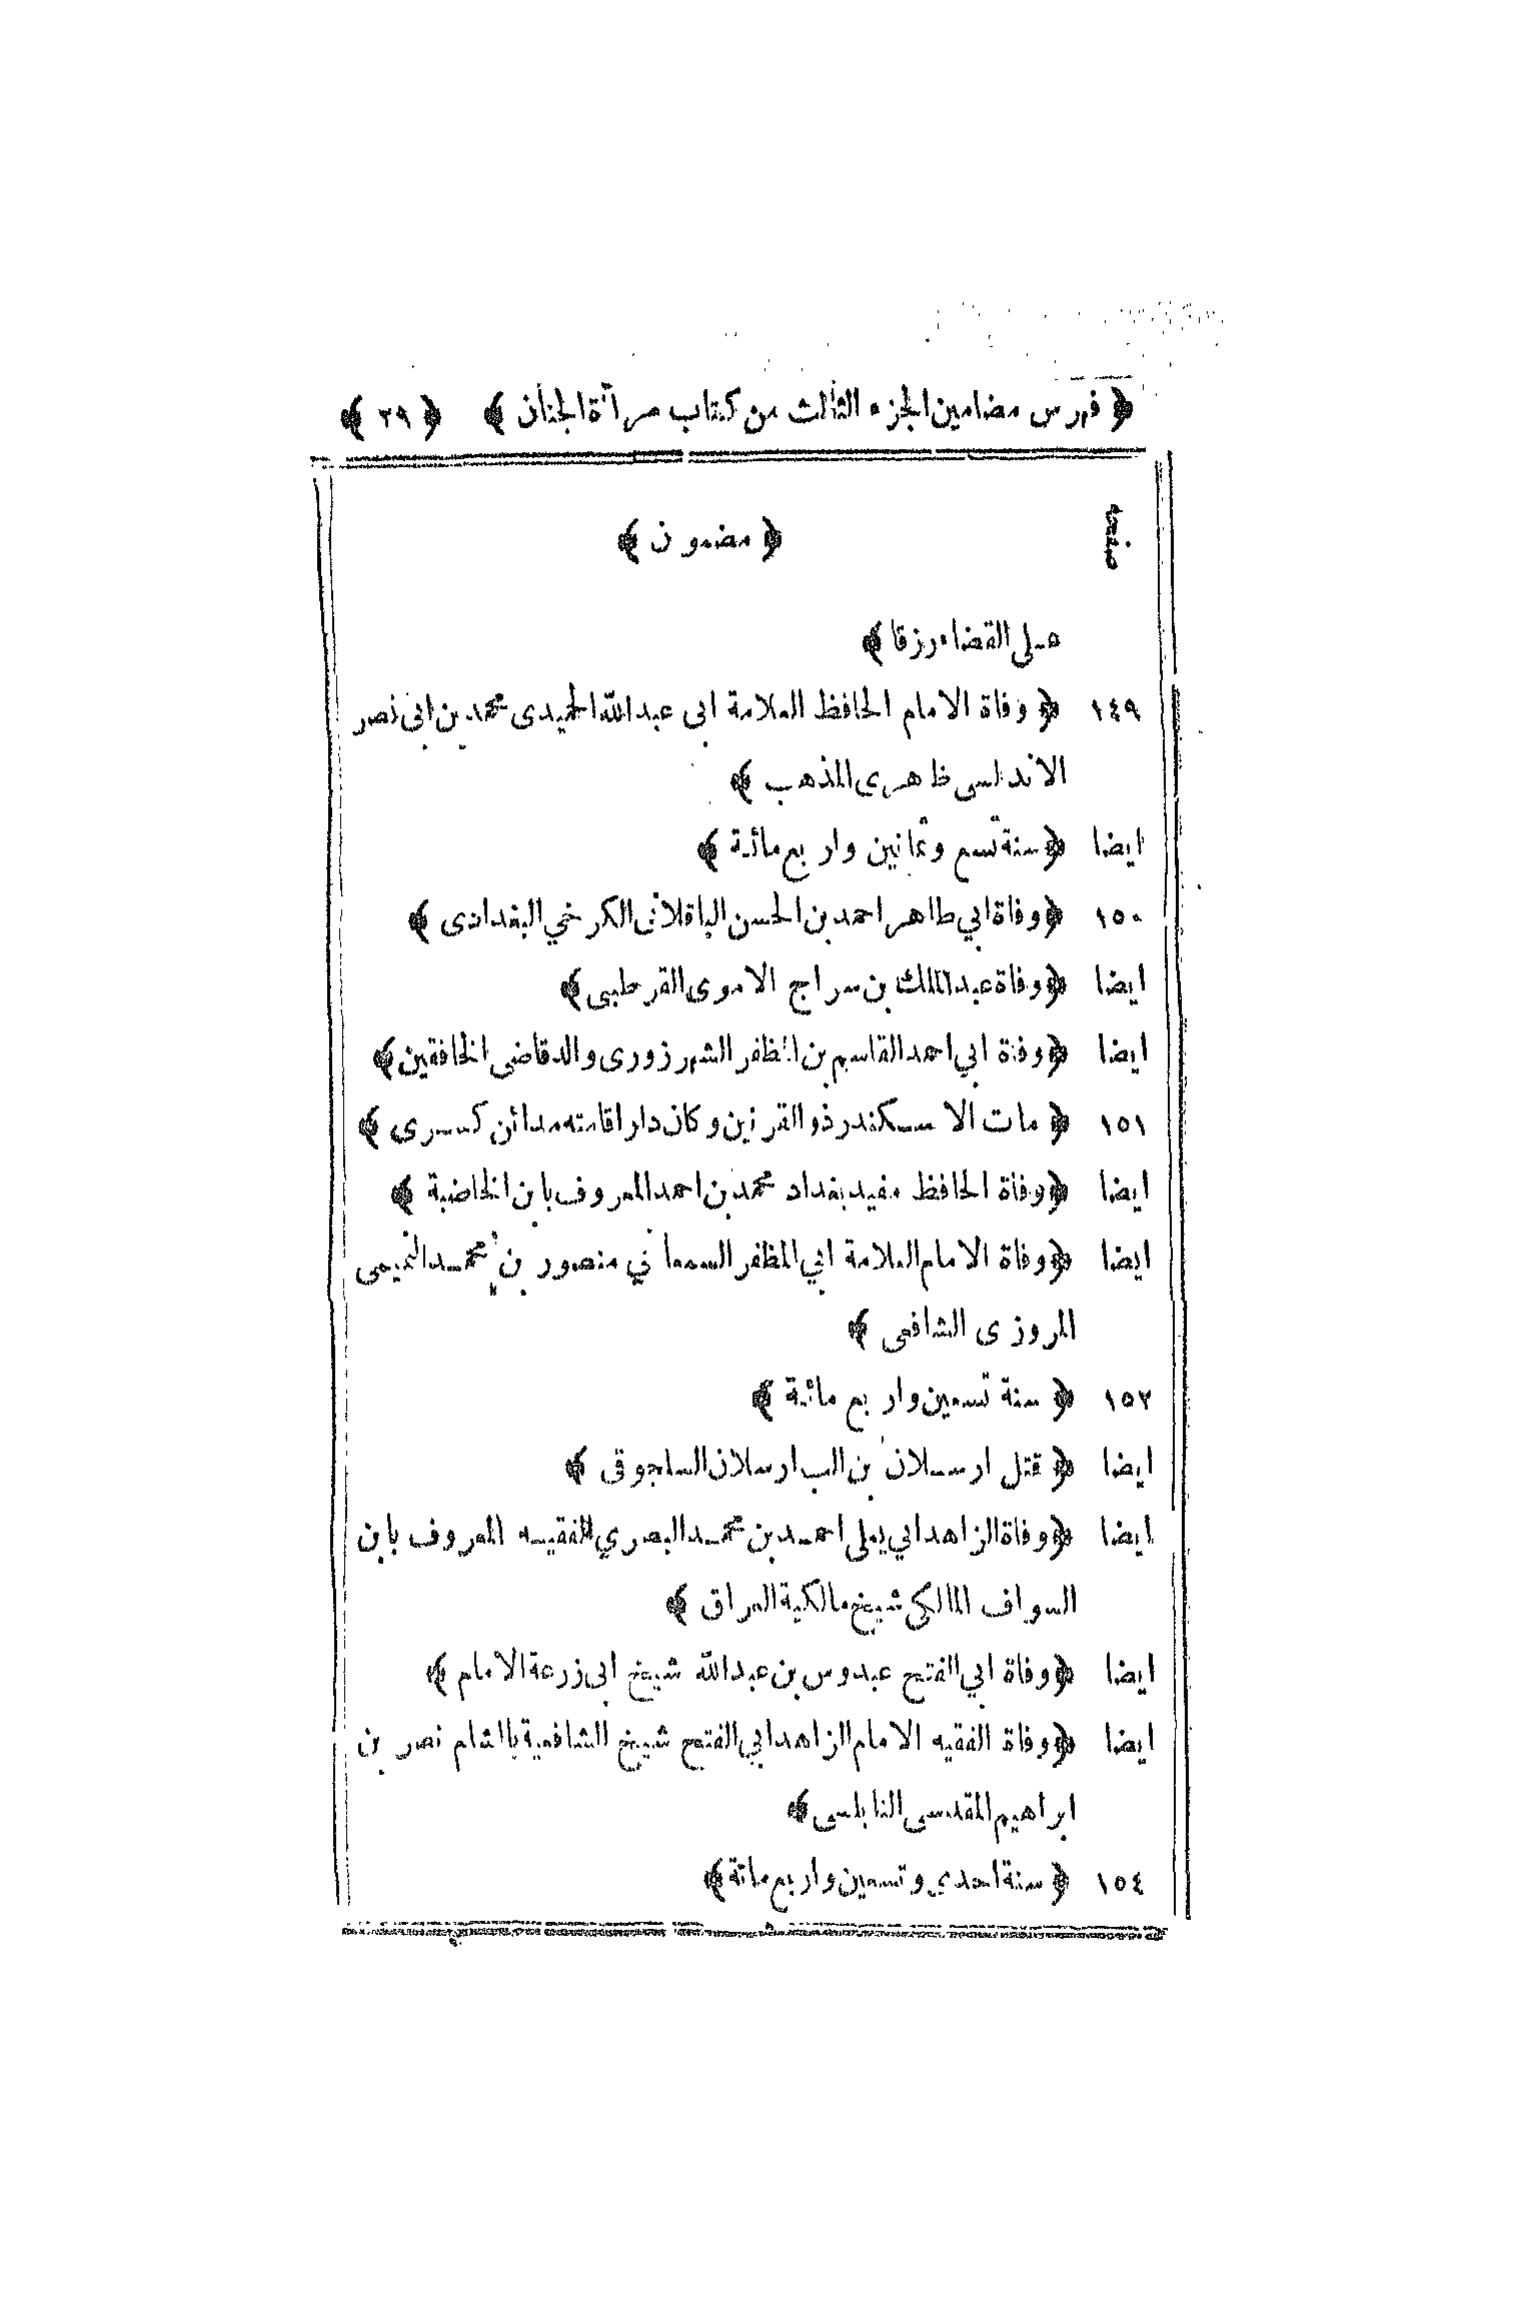 ﴿ فهرس مضامين الجزء الثالث من كتاب مرآة الجنان ﴾ ﴿ ٢٩ ﴾
صفحه ﴿ مضمون ﴾
على القضاء رزقا ﴾
١٤٩ ﴿ وفاة الامام الحافظ العلامة ابى عبد الله الحميدى محمد بن ابى نصر
الاندلسى ظاهرى المذهب ﴾
ايضا ﴿ سنة تسع وثمانين واربع مائة ﴾
١٥٠ ﴿ وفاة ابي طاهر احمد بن الحسن الباقلانى الكرخي البغدادى ﴾
ايضا ﴿ وفاة عبد الملك بن سراج الاموى القرطبى ﴾
ايضا ﴿ وفاة ابي احمد القاسم بن المظفر الشهرزورى والد قاضى الخافقين ﴾
١٥١ ﴿ مات الاسكندر ذو القرنين وكان دار اقامته مدائن كسرى ﴾
ايضا ﴿ وفاة الحافظ مفيد بغداد محمد بن احمد المعروف بابن الخاضبة ﴾
ايضا ﴿ وفاة الامام العلامة ابي المظفر السمعاني منصور بن محمد التميمى
المروزى الشافعى ﴾
١٥٢ ﴿ سنة تسعين واربع مائة ﴾
ايضا ﴿ قتل ارسلان بن الب ارسلان السلجوقى ﴾
ايضا ﴿ وفاة الزاهد ابي يعلى احمد بن محمد البصري الفقيه المعروف بابن
السواف المالكى شيخ مالكية العراق ﴾
ايضا ﴿ وفاة ابي الفتح عبدوس بن عبد الله شيخ ابى زرعة الامام ﴾
ايضا ﴿ وفاة الفقيه الامام الزاهد ابي الفتح شيخ الشافعية بالشام نصر بن
ابراهيم المقدسى النابلسى ﴾
١٥٤ ﴿ سنة احدي وتسعين واربع مائة ﴾